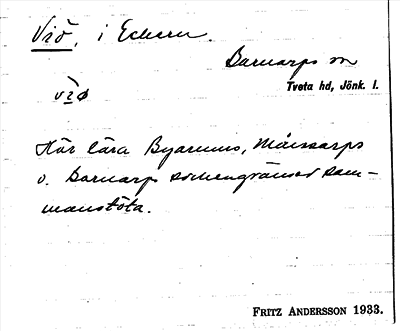 Viö, i Eckern.
Barnarps sn
Tveta hd, Jönk. l.
vi̠ø
Här lära Byarums, Månsarps
o. Barnarps sockengränser sam-
manstöta.
FRITZ ANDERSSON 1933.